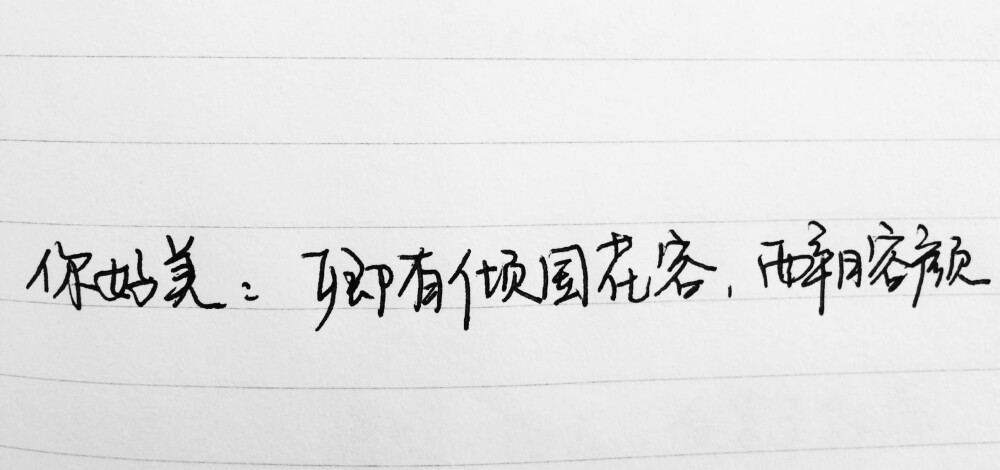 你好美：卿有倾国花容，醉月容颜